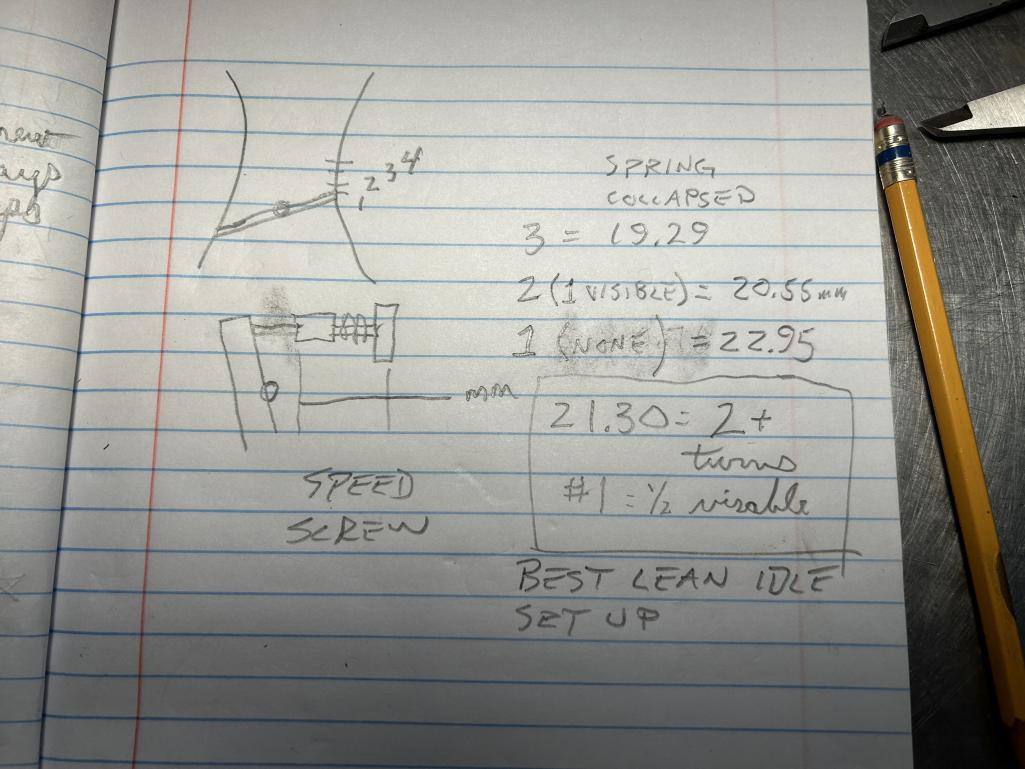 1 2 3 4
SPRING
COLLAPSED
3 = 19.29
2 (1 VISIBLE) = 20.55 mm
1 (NONE) = 22.95
mm
21.30 = 2+
turns
#1 = ½ visable
SPEED
SCREW
BEST LEAN IDLE
SET UP